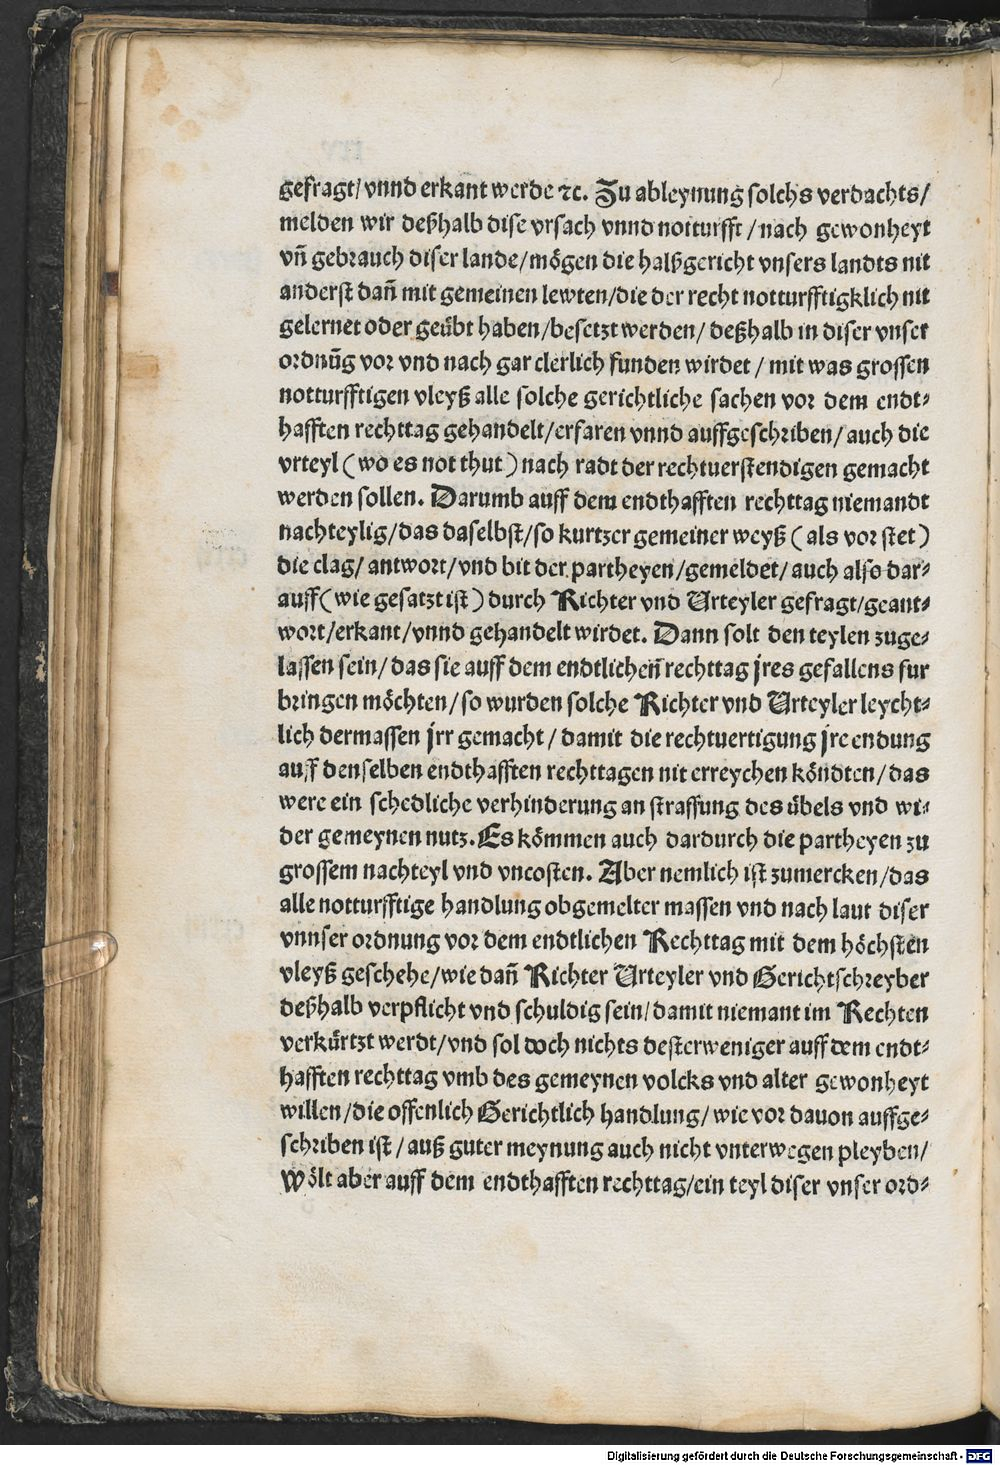 gefragt/ vnnd erkant werde ⁊c. Zu ableynung solchs verdachts/
melden wir deßhalb dise vrsach vnnd notturfft / nach gewonheyt
vñ gebrauch diser lande/mögen die halßgericht vnsers landts nit
anderst dañ mit gemeinen lewten/die der recht notturfftigklich nit
gelernet oder geübt haben/besetzt werden/ deßhalb in diser vnser
ordnũg vor vnd nach gar clerlich funden wirdet / mit was grossen
notturfftigen vleyß alle solche gerichtliche sachen vor dem endt⸗
hafften rechttag gehandelt/erfaren vnnd auffgeschriben/ auch die
vrteyl (wo es not thut) nach radt der rechtuerstendigen gemacht
werden sollen. Darumb auff dem endthafften rechttag niemandt
nachteylig/das daselbst/so kurtzer gemeiner weyß (als vor stet)
die clag/ antwort/vnd bit der partheyen/gemeldet/ auch also dar⸗
auff(wie gesatzt ist) durch Richter vnd Urteyler gefragt/geant⸗
wort/erkant/vnnd gehandelt wirdet. Dann solt den teylen zuge⸗
lassen sein/das sie auff dem endtlicheñ rechttag jres gefallens fur
bringen möchten/so wurden solche Richter vnd Urteyler leycht⸗
lich dermassen jrr gemacht/ damit die rechtuertigung jre endung
auff denselben endthafften rechttagen nit erreychen köndten/das
were ein schedliche verhinderung an straffung des übels vnd wi⸗
der gemeynen nutz. Es kömmen auch dardurch die partheyen zu
grossem nachteyl vnd vncosten. Aber nemlich ist zumercken/das
alle notturfftige handlung obgemelter massen vnd nach laut diser
vnnser ordnung vor dem endtlichen Rechttag mit dem höchsten
vleyß geschehe/wie dañ Richter Urteyler vnd Gerichtschreyber
deßhalb verpflicht vnd schuldig sein/damit niemant im Rechten
verkürtzt werdt/vnd sol doch nichts desterweniger auff dem endt⸗
hafften rechttag vmb des gemeynen volcks vnd alter gewonheyt
willen/die offenlich Gerichtlich handlung/ wie vor dauon auffge⸗
schriben ist/ auß guter meynung auch nicht vnterwegen pleyben/
Wölt aber auff dem endthafften rechttag/ein teyl diser vnser ord⸗
Digitalisierung gefördert durch die Deutsche Forschungsgemeinschaft - DFG